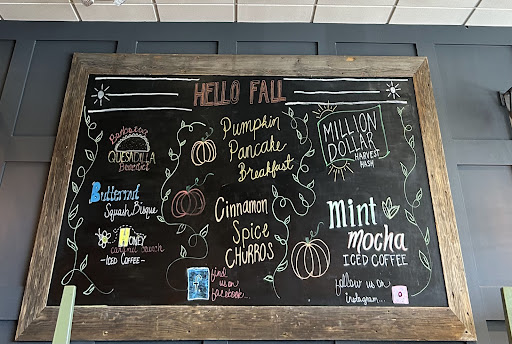 HELLO FALL
Barbacoa
QUESADILLA
Benedict
Butternut
Squash Bisque
HONEY
Caramel Crunch
- ICED COFFEE -
Pumpkin
Pancake
Breakfast
Cinnamon
Spice
CHURROS
find
us on
facebook...
MILLION
DOLLAR
HARVEST
HASH
Mint
Mocha
ICED COFFEE
follow us on
instagram...